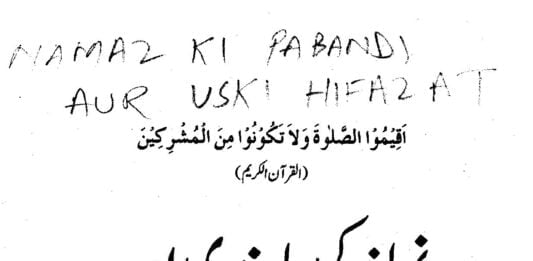 NAMAZ KI PABANDI
AUR USKI HIFAZAT
اَقِيْمُوا الصَّلٰوةَ وَلَا تَكُوْنُوْا مِنَ الْمُشْرِكِيْنَ
(القرآن الکریم)